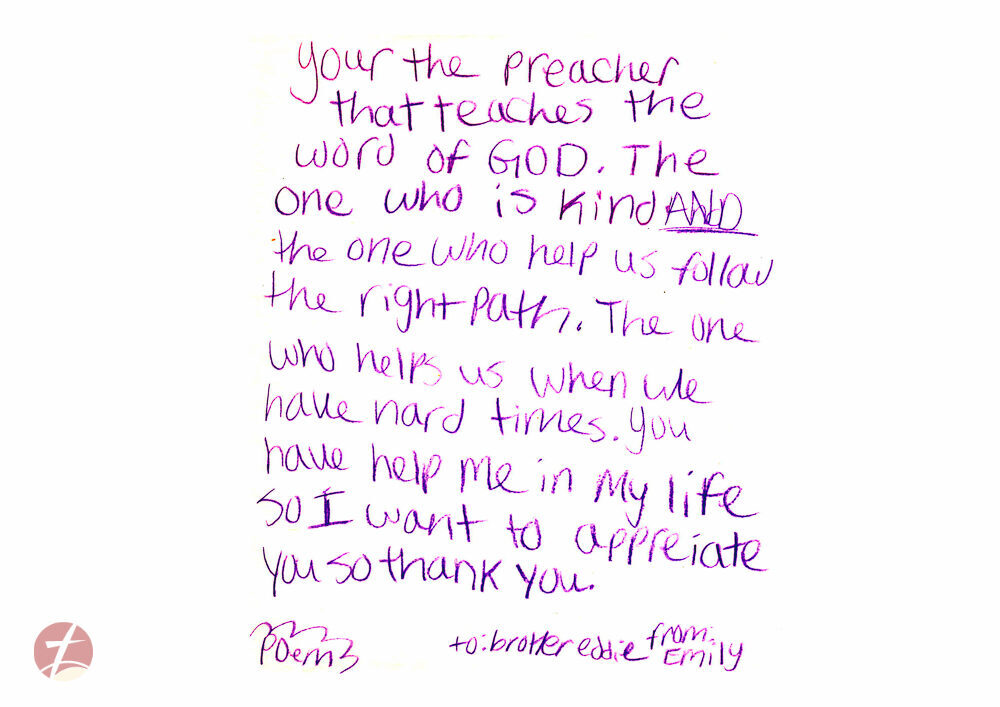 your the preacher
that teaches the
word of GOD. The
one who is kind AND
the one who help us follow
the right path. The one
who helps us when we
have hard times. you
have help me in my life
so I want to appreiate
you so thank you.
Poem
to: brother eddie from:
Emily